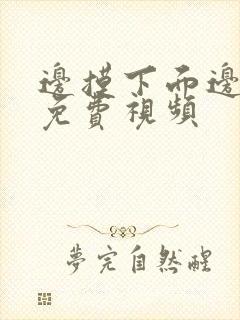 邊摸下而邊
免費視頻
夢完自然醒